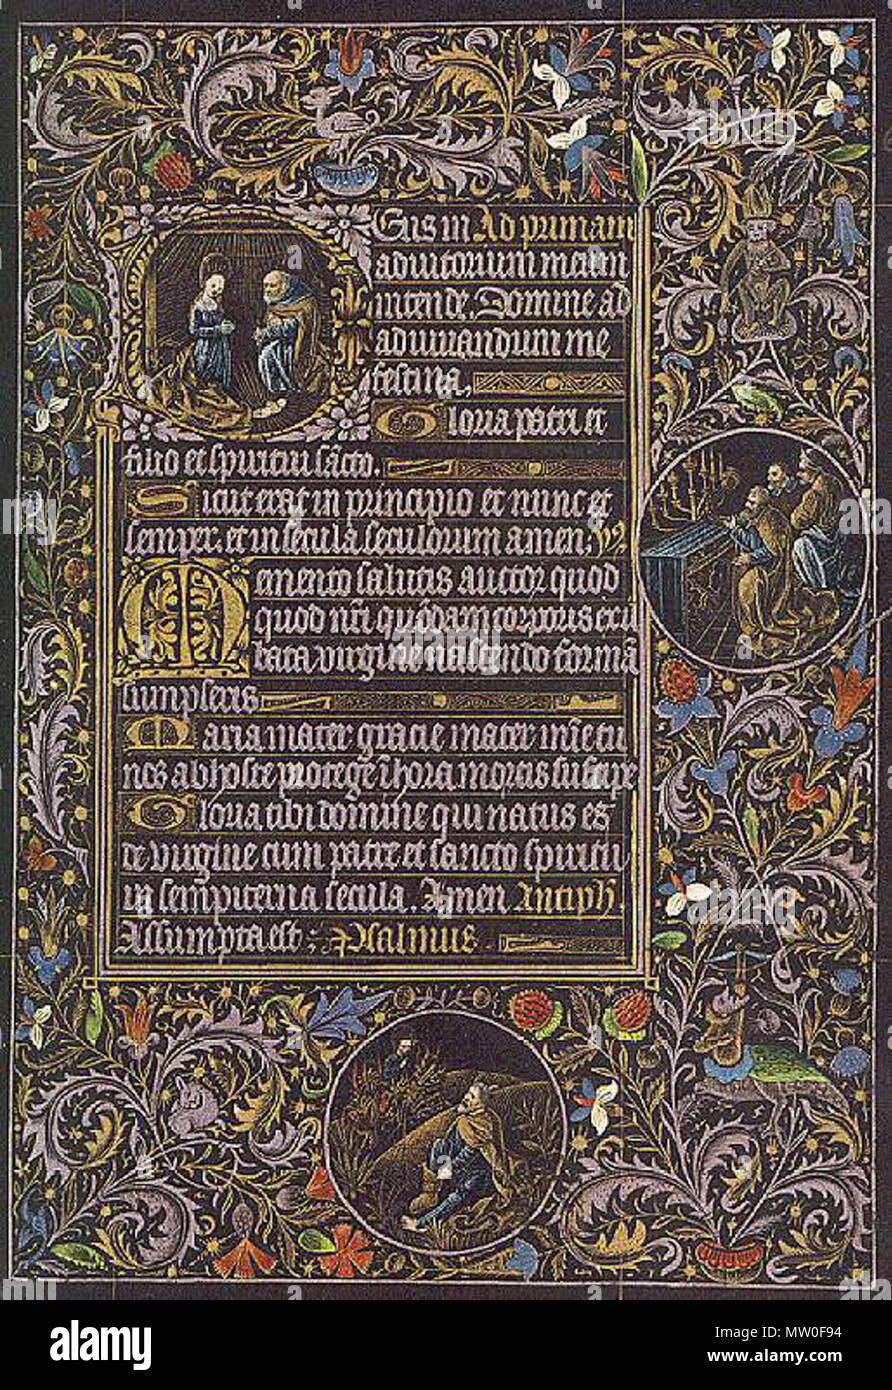 Eus in Ad primam
adiutorium meum
intende. Domine ad
adiuuandum me
festina,
Gloria patri et
filio et spiritui sancto.
Sicut erat in principio et nunc et
semper. et in secula seculorum amen,
Memento salutis auctor quod
quod nri quodam corporis ex in
bata virgine nascendo forma
sumpseris
Maria mater gracie mater mie tu
nos ab hoste protege i hora mortis suscipe
Gloria tibi domine qui natus es
de virgine cum patre et sancto spiritu
in sempiterna secula. Amen Antiph.
Assumpta est : Psalmus
alamy
Image ID: MW0F94
www.alamy.com